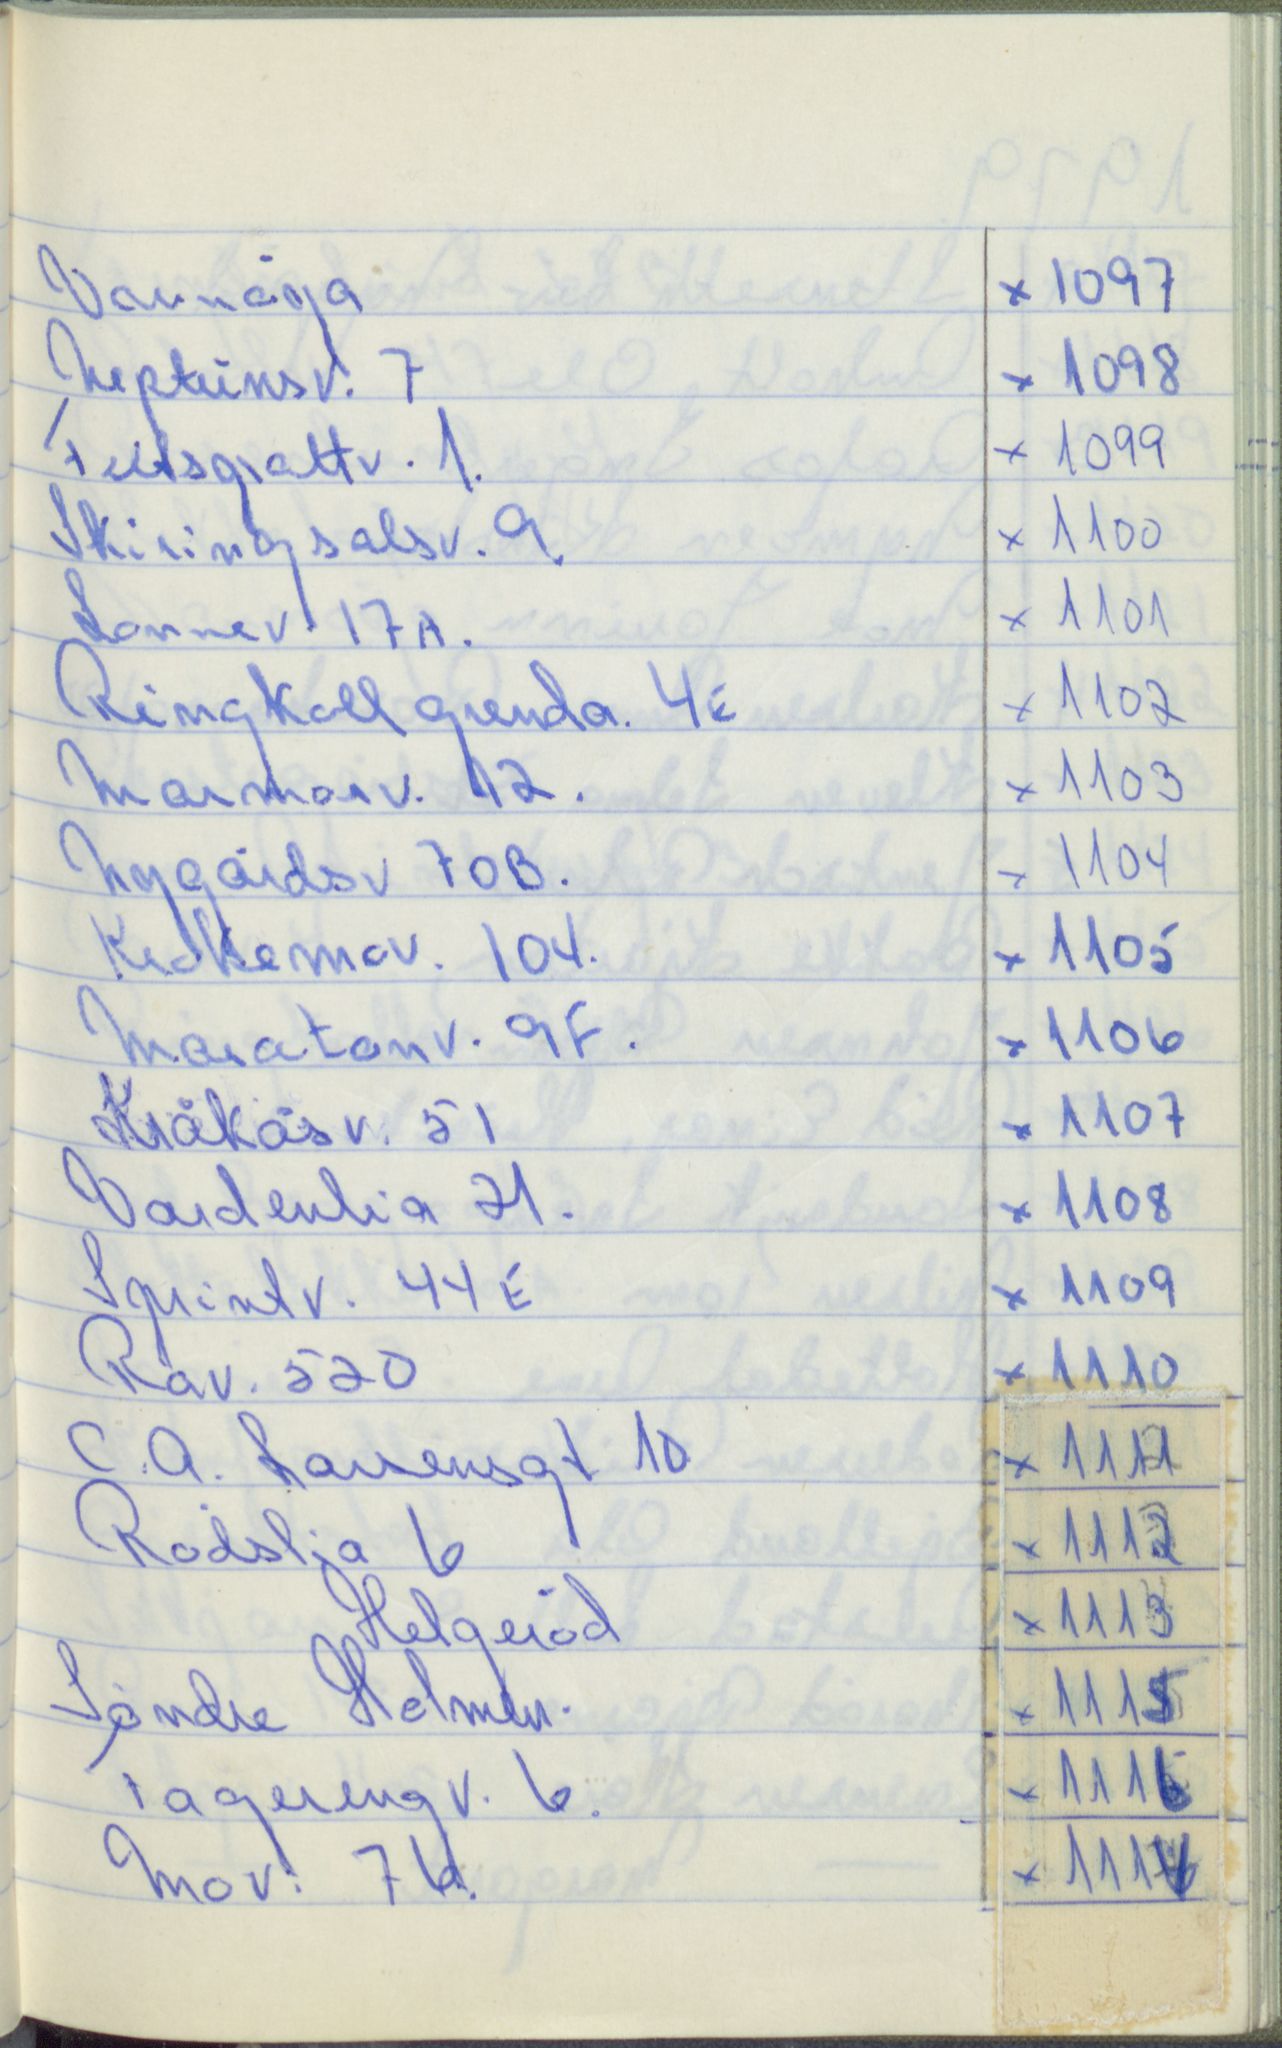 Varnåga × 1097
Neptunsv. 7 × 1098
Feltspattv. 1. × 1099
Skiringsalsv. 9. × 1100
Lønnev. 17A. × 1101
Ringkollgrenda. 4E × 1102
Marmorv. 12. × 1103
Nygårdsv 70B. × 1104
Krokemov. 104. × 1105
Maratonv. 9F. × 1106
Kråkåsv. 51 × 1107
Vardenlia 21. × 1108
Sprintv. 44E × 1109
Råv. 520 × 1110
C.A. Larsensgt 10 × 1111
Rødslia 6 × 1112
Helgerød × 1113
Søndre Holmen. × 111
Fagerengv. 6. × 111
Mov. 76. × 111